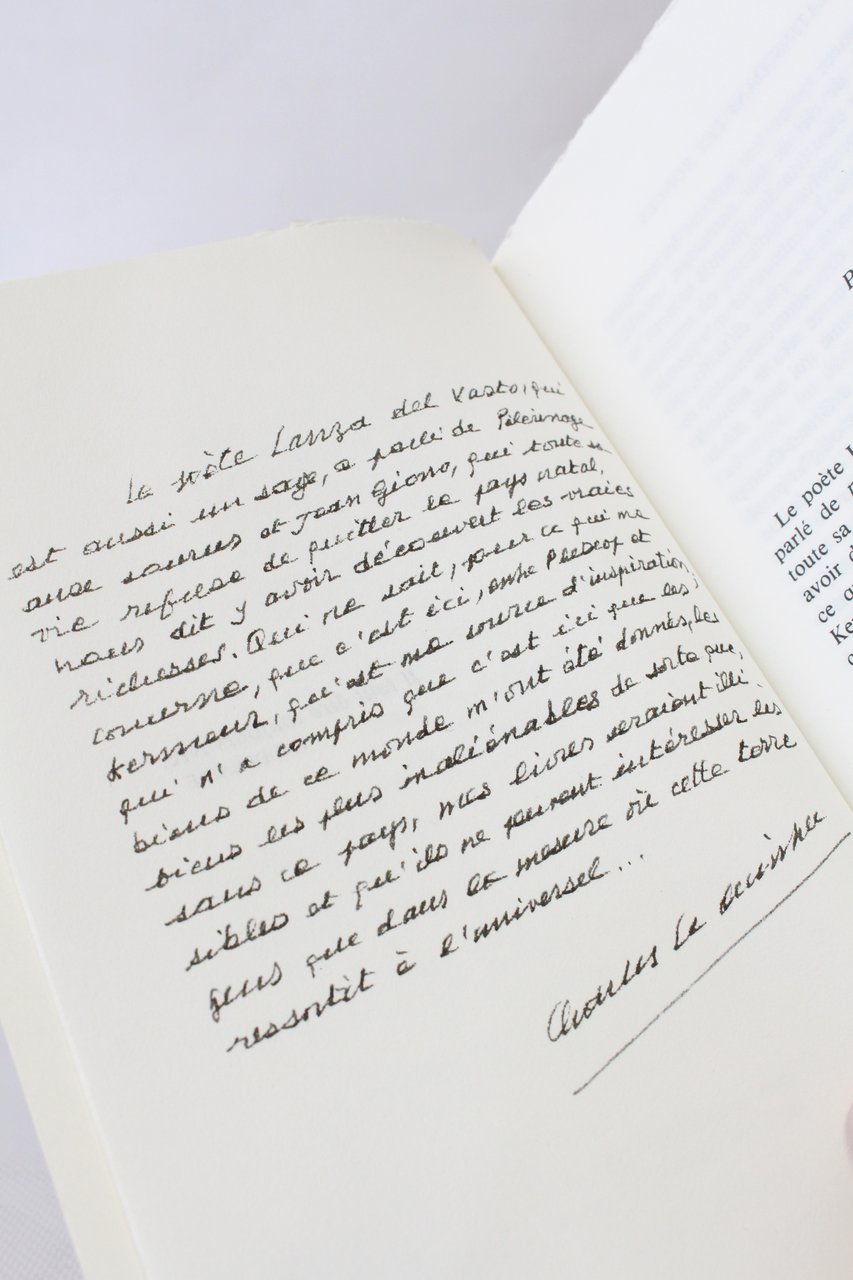 Le poète Lanza del Vasto, qui
est aussi un sage, a parlé de Pèlerinage
aux sources et Jean Giono, qui toute sa
vie refusa de quitter le pays natal,
nous dit y avoir découvert les vraies
richesses. Qui ne sait, pour ce qui me
concerne, que c'est ici, entre Plescop et
Kermeur, qu'est ma source d'inspiration,
qui n'a compris que c'est ici que les
biens de ce monde m'ont été donnés, les
biens les plus inaliénables de sorte que,
sans ce pays, mes livres seraient illi
sibles et qu'ils ne peuvent intéresser les
gens que dans la mesure où cette terre
ressortit à l'universel...
Charles Le Quintrec
Le poète
parlé de
toute sa
avoir
ce